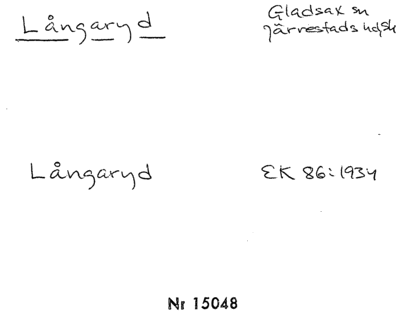 Långaryd
Gladsax sn
Järrestads hd
Långaryd
EK 86:1934
Nr 15048